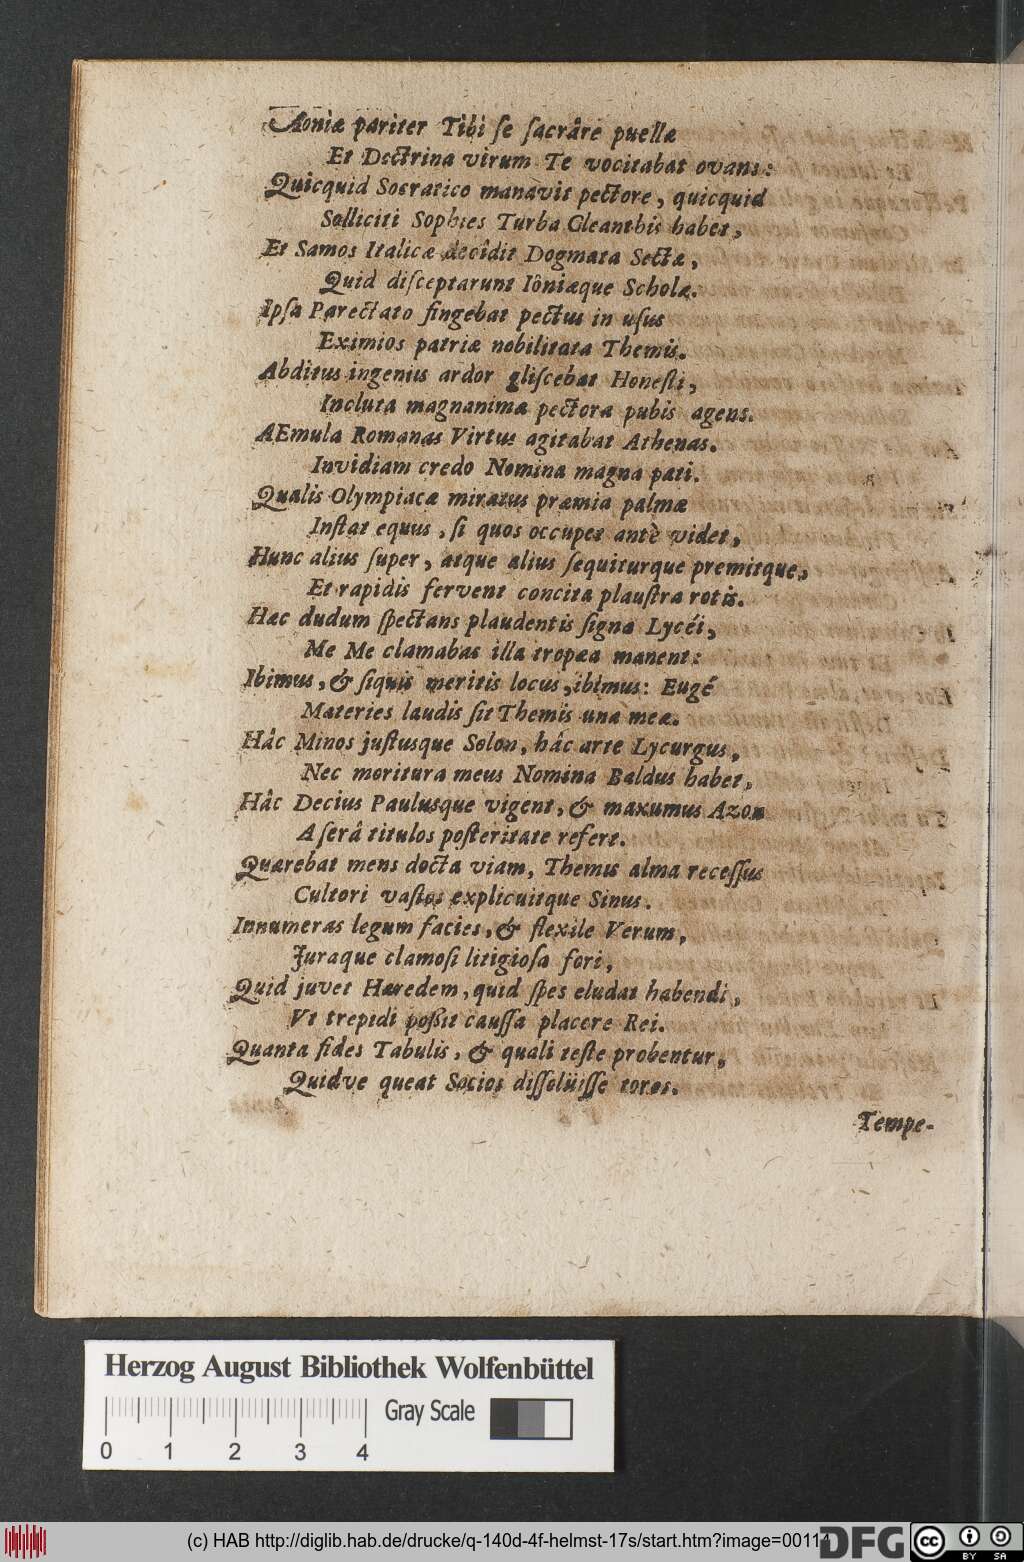 Aoniæ pariter Tibi ſe ſacrâre puellæ
Et Doctrina virum Te vocitabat ovans:
Quicquid Socratico manavit pectore, quicquid
Solliciti Sophies Turba Cleanthis habet,
Et Samos Italicæ decîdit Dogmata Sectæ,
Quid diſceptarunt Iôniæque Scholæ.
Ipſa Parectato fingebat pectus in uſus
Eximios patriæ nobilitata Themis.
Abditus ingenius ardor gliſcebat Honeſti,
Incluta magnanimæ pectora pubis agens.
AEmula Romanas Virtus agitabat Athenas.
Invidiam credo Nomina magna pati.
Qualis Olympiacæ miratus præmia palmæ
Inſtat equus, ſi quos occupet antè videt,
Hunc alius ſuper, atque alius ſequiturque premitque,
Et rapidis fervent concita plauſtra rotis.
Hac dudum ſpectans plaudentis ſigna Lycéi,
Me Me clamabas illa tropæa manent:
Ibimus, & ſiquis meritis locus, ibimus: Eugé
Materies laudis ſit Themis una meæ.
Hâc Minos juſtusque Solon, hâc arte Lycurgus,
Nec moritura meus Nomina Baldus habet,
Hâc Decius Paulusque vigent, & maxumus Azon
A ſerâ titulos poſteritate refert.
Quærebat mens docta viam, Themis alma receſſus
Cultori vaſtos explicuitque Sinus.
Innumeras legum facies, & flexile Verum,
Juraque clamoſi litigioſa fori,
Quid juvet Hæredem, quid ſpes eludat habendi,
Vt trepidi poßit cauſſa placere Rei.
Quanta fides Tabulis, & quali teſte probentur,
Quidve queat Socios diſſolüiſſe toros.
Tempe-
Herzog August Bibliothek Wolfenbüttel
Gray Scale
0 1 2 3 4
(c) HAB http://diglib.hab.de/drucke/q-140d-4f-helmst-17s/start.htm?image=00114
DFG
cc BY SA